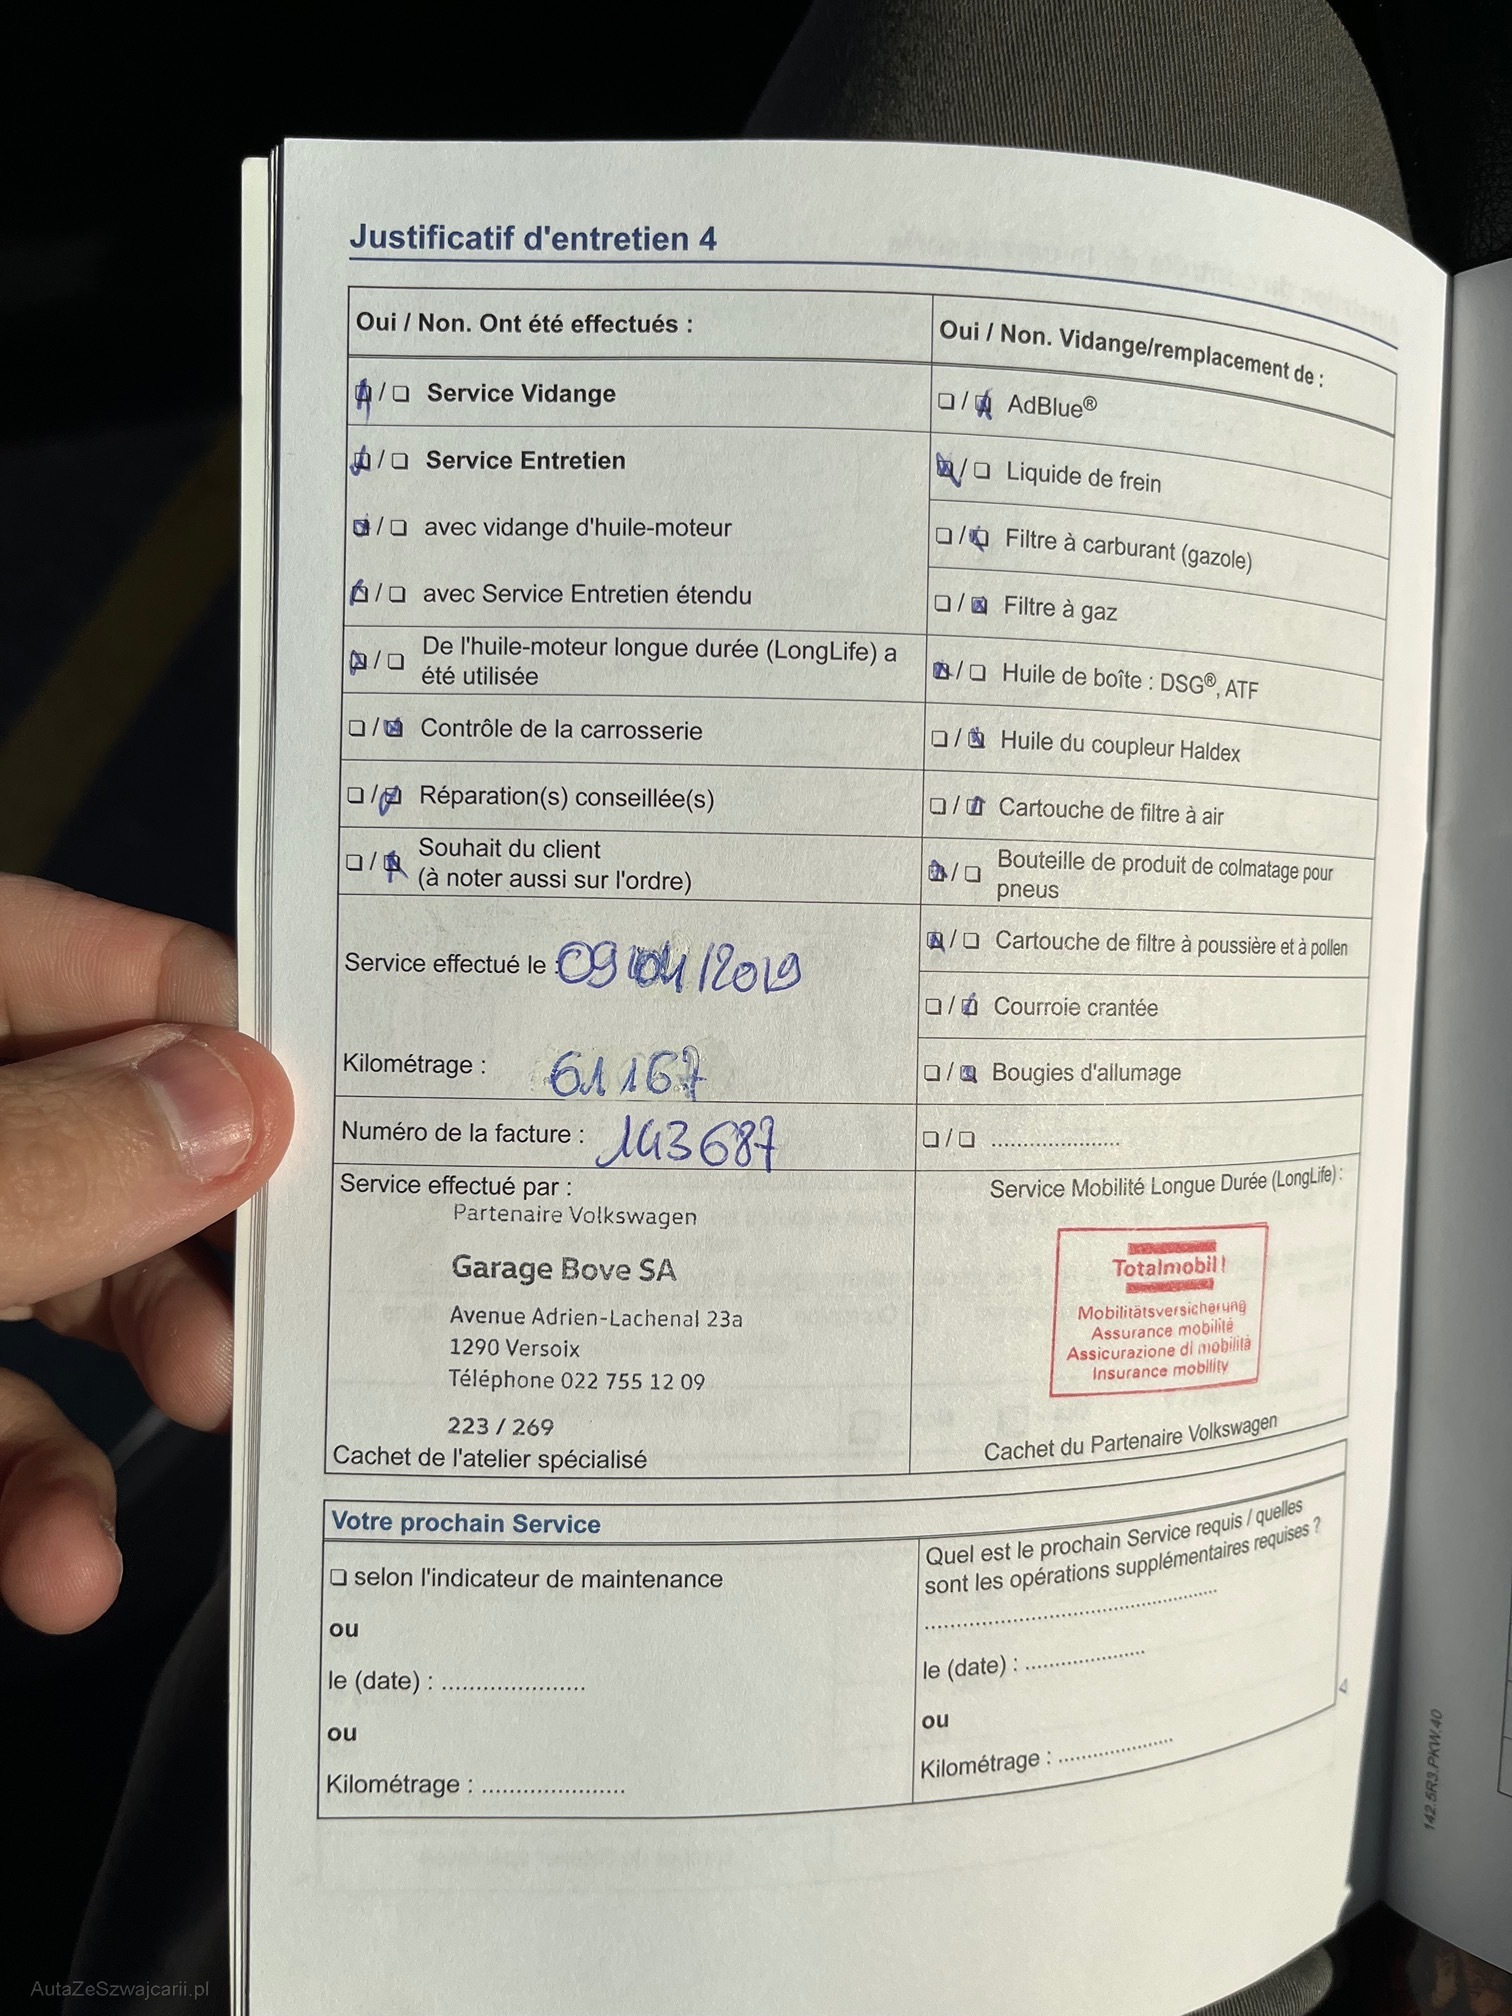 Justificatif d'entretien 4
Oui / Non. Ont été effectués :
☒ / ☐ Service Vidange
☒ / ☐ Service Entretien
☒ / ☐ avec vidange d'huile-moteur
☒ / ☐ avec Service Entretien étendu
☒ / ☐ De l'huile-moteur longue durée (LongLife) a
été utilisée
☐ / ☒ Contrôle de la carrosserie
☐ / ☒ Réparation(s) conseillée(s)
☐ / ☒ Souhait du client
(à noter aussi sur l'ordre)
Service effectué le : 09/04/2019
Kilométrage : 61167
Numéro de la facture : 143687
Service effectué par :
Partenaire Volkswagen
Garage Bove SA
Avenue Adrien-Lachenal 23a
1290 Versoix
Téléphone 022 755 12 09
223 / 269
Cachet de l'atelier spécialisé
Oui / Non. Vidange/remplacement de :
☐ / ☒ AdBlue®
☒ / ☐ Liquide de frein
☐ / ☒ Filtre à carburant (gazole)
☐ / ☒ Filtre à gaz
☒ / ☐ Huile de boîte : DSG®, ATF
☐ / ☒ Huile du coupleur Haldex
☐ / ☒ Cartouche de filtre à air
☒ / ☐ Bouteille de produit de colmatage pour
pneus
☒ / ☐ Cartouche de filtre à poussière et à pollen
☐ / ☒ Courroie crantée
☐ / ☒ Bougies d'allumage
☐ / ☐ .....................
Service Mobilité Longue Durée (LongLife) :
Totalmobil!
Mobilitätsversicherung
Assurance mobilité
Assicurazione di mobilità
Insurance mobility
Cachet du Partenaire Volkswagen
Votre prochain Service
☐ selon l'indicateur de maintenance
ou
le (date) : .....................
ou
Kilométrage : .....................
Quel est le prochain Service requis / quelles
sont les opérations supplémentaires requises ?
..........................................
le (date) : .................
ou
Kilométrage : .................
4
142.5R3.PKW.40
AutaZeSzwajcarii.pl